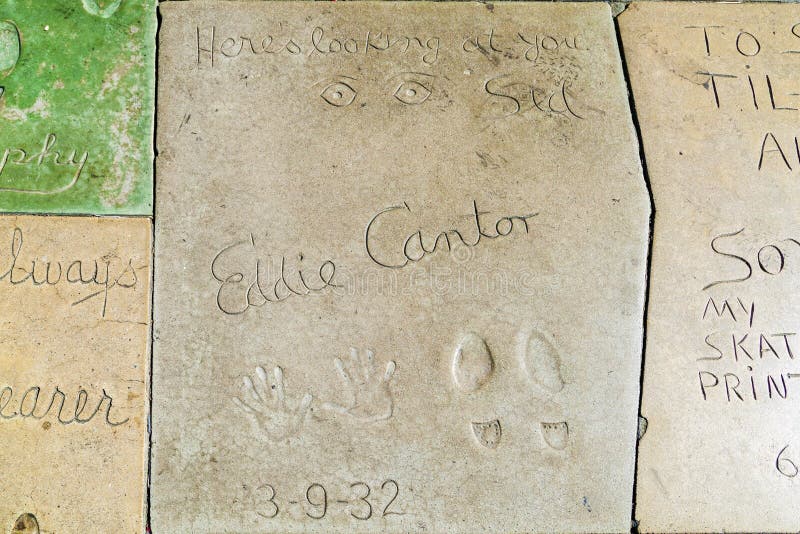 Here's looking at you
Sid
Eddie Cantor
3-9-32
phy
lways
earer
TO S
TIL
A
SO
MY
SKAT
PRINT
6
dreamstime